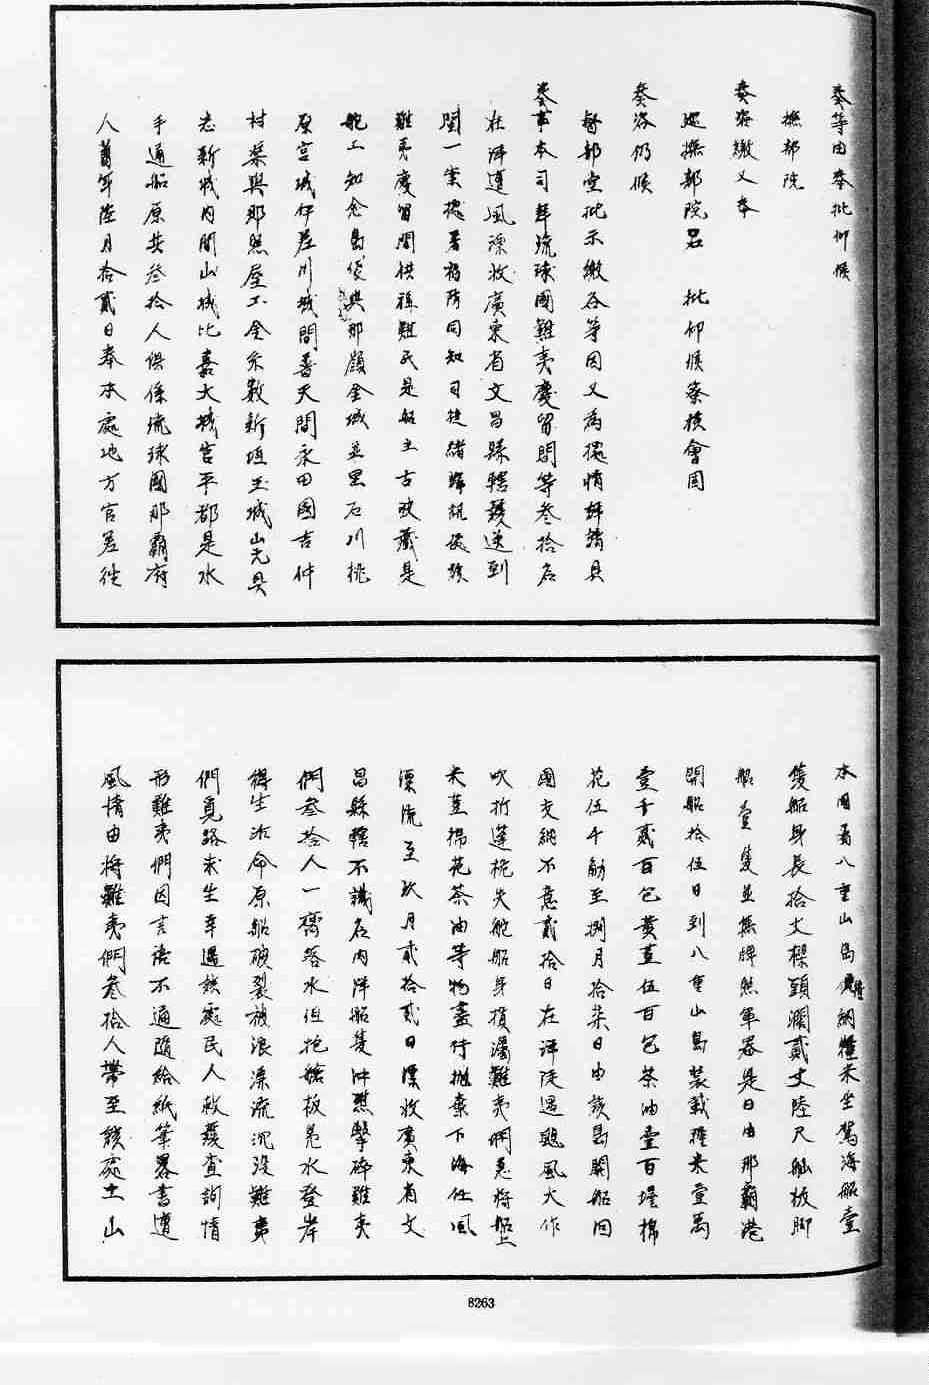 奏等由奉批仰候
撫部院
奏咨繳又奉
巡撫部院呂 批仰候察核會同
奏咨仍候
督部堂批示繳各等因又為擾情詳請具
奏事本司詳琉球國難夷慶留間等叁拾名
在洋遭風漂收廣東省文昌縣轄護送到
閩一案據署福防同知司徒緒詳訊據該
難夷慶留間供稱難民是船主古波藏是
舵工知念島袋與那嶺金城並黑石川桃
原宮城伊差川城間普天間永田國吉仲
村渠與那照屋不金糸數新垣玉城山元具
志新城內間山城比嘉大城宮平都是水
手通船原共叁拾人俱係琉球國那霸府
人舊年陸月拾貳日奉本處地方官差往
本國屬八重山島貢納糧米坐駕海船壹
隻船身長拾丈樑頭濶貳丈陸尺舢板脚
船壹隻並無牌照軍器是日由那霸港
開船拾伍日到八重山島裝載糧米壹萬
壹千貳百包黃荳伍百包茶油壹百壜棉
花伍千觔至捌月拾柒日由該島開船回
國交納不意貳拾日在洋陡遇颶風大作
吹折蓬桅失舵船身損漏難夷們急將船上
米荳棉花茶油等物盡行抛棄下海任風
漂流至玖月貳拾貳日漂收廣東省文
昌縣轄不識名內洋船隻冲礁擊碎難夷
們叁拾人一齊落水但抱艙板鳧水登岸
得生活命原船破裂被浪漂流沉沒難夷
們覓路求生幸遇該處民人救護查詢情
形難夷們因言語不通隨給紙筆畧書遭
風情由將難夷們叁拾人帶至該處土山
8263